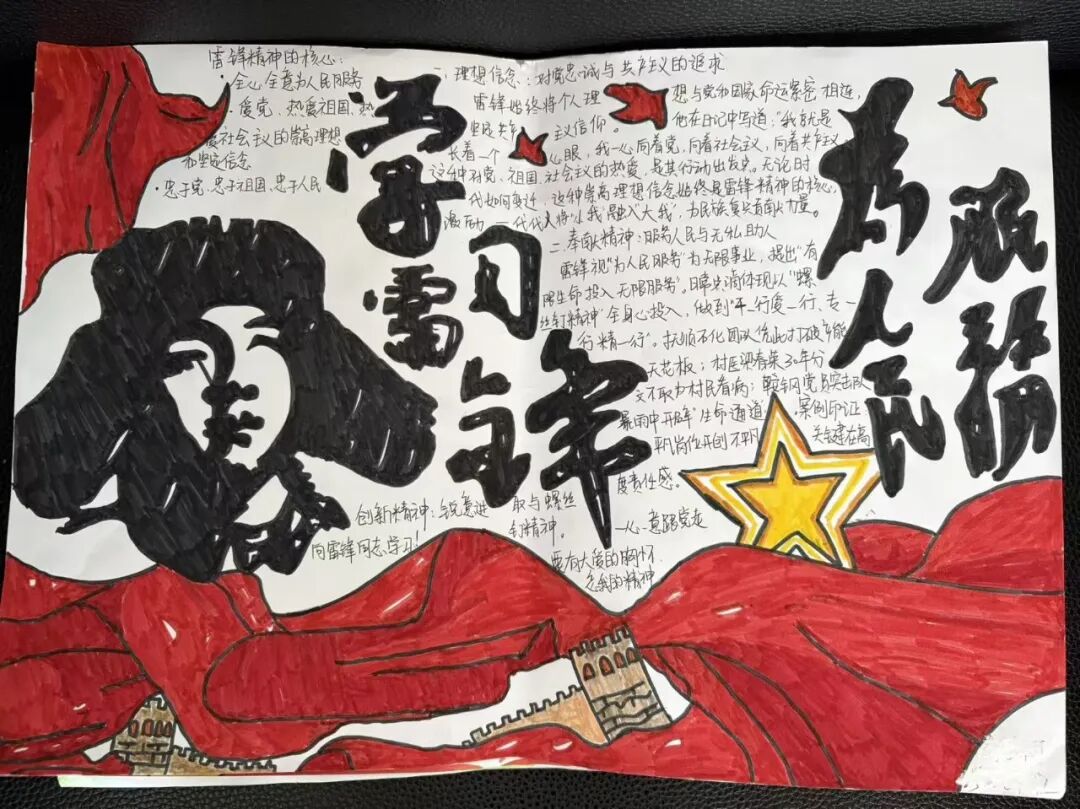 雷锋精神的核心:
·全心全意为人民服务
·爱党、热爱祖国、热
爱社会主义的崇高理想
和坚定信念
·忠于党、忠于祖国、忠于人民
学习雷锋
一、理想信念:对党忠诚与共产主义的追求
雷锋始终将个人理想与党和国家命运紧密相连,
坚定共产主义信仰。他在日记中写道:"我就是
长着一个心眼,我一心向着党,向着社会主义,向着共产主义
这种对党、祖国、社会主义的热爱,是其行动出发点。无论时
代如何变迁,这种崇高理想信念始终是雷锋精神的核心,
激励一代代人将"小我"融入"大我",为民族复兴贡献力量。
二、奉献精神:服务人民与无私助人
雷锋视"为人民服务"为无限事业,提出"有
限生命投入无限服务"。日常点滴体现以"螺
丝钉精神"全身心投入,做到"干一行爱一行、专一
行精一行"。抚顺石化团队凭此打破产能
天花板;村医梁春荣30年分
文不取为村民看病;鞍钢党员突击队
暴雨中开辟"生命通道"。案例印证
平凡岗位开创不平凡 关键在高
度责任感。
为人民服务
创新精神:锐意进取与螺丝
钉精神。
向雷锋同志学习!
一心一意跟党走
要有大度的胸怀
忘我的精神